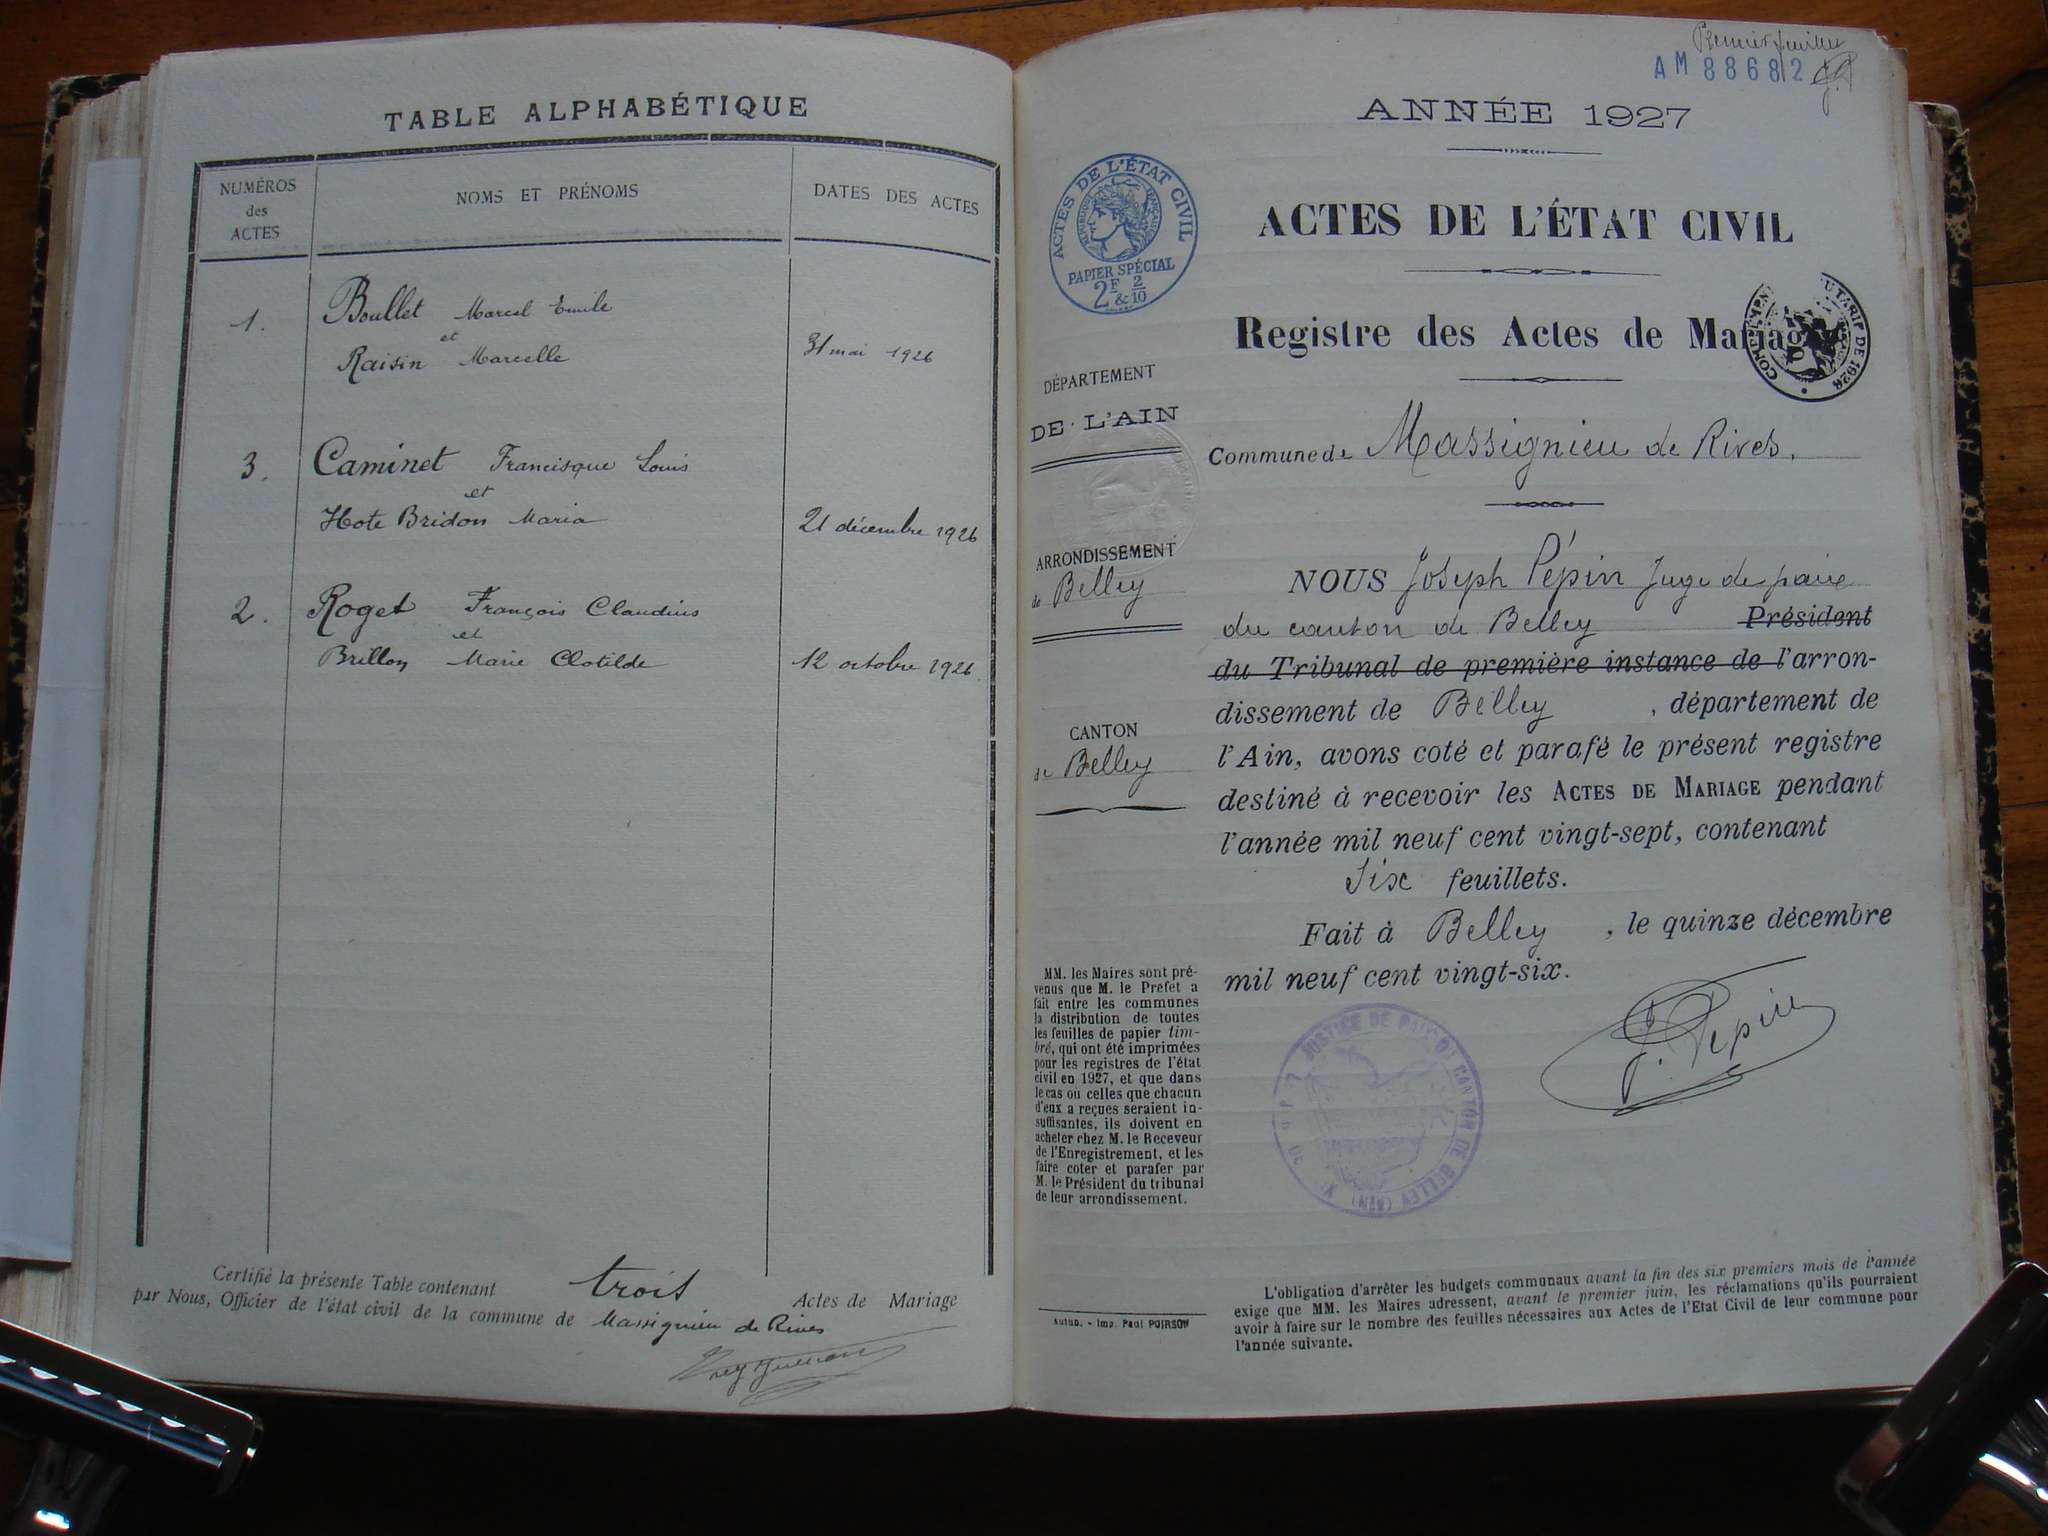 TABLE ALPHABÉTIQUE
NUMÉROS
des
ACTES
NOMS ET PRÉNOMS
DATES DES ACTES
1. Boullet Marcel Emile
et
Raisin Marcelle 31 mai 1926
3. Caminet Francisque Louis
et
Hote Bridon Maria 21 décembre 1926
2. Roget François Claudius
et
Brillon Marie Clotilde 12 octobre 1926.
Certifié la présente Table contenant trois Actes de Mariage
par Nous, Officier de l'état civil de la commune de Massignieu de Rives
Premier feuillet
AM 88682
ANNÉE 1927
ACTES DE L'ÉTAT CIVIL
RÉPUBLIQUE FRANÇAISE
PAPIER SPÉCIAL
2F & 2/10
ACTES DE L'ÉTAT CIVIL
Registre des Actes de Mariage
TARIF DE 1926
DÉPARTEMENT
DE L'AIN
Commune de Massignieu de Rives.
ARRONDISSEMENT
de Belley
CANTON
de Belley
NOUS Joseph Pépin Juge de paix
du canton de Belley Président
du Tribunal de première instance de l'arron-
dissement de Belley, département de
l'Ain, avons coté et parafé le présent registre
destiné à recevoir les ACTES DE MARIAGE pendant
l'année mil neuf cent vingt-sept, contenant
Six feuillets.
Fait à Belley, le quinze décembre
mil neuf cent vingt-six.
J. Pépin
JUSTICE DE PAIX DU CANTON DE BELLEY (AIN)
MM. les Maires sont pré-
venus que M. le Préfet a
fait entre les communes
la distribution de toutes
les feuilles de papier tim-
bré, qui ont été imprimées
pour les registres de l'état
civil en 1927, et que dans
le cas où celles que chacun
d'eux a reçues seraient in-
suffisantes, ils doivent en
acheter chez M. le Receveur
de l'Enregistrement, et les
faire coter et parafer par
M. le Président du tribunal
de leur arrondissement.
Autun. - Imp. Paul POIRSON
L'obligation d'arrêter les budgets communaux avant la fin des six premiers mois de l'année
exige que MM. les Maires adressent, avant le premier juin, les réclamations qu'ils pourraient
avoir à faire sur le nombre des feuilles nécessaires aux Actes de l'Etat Civil de leur commune pour
l'année suivante.